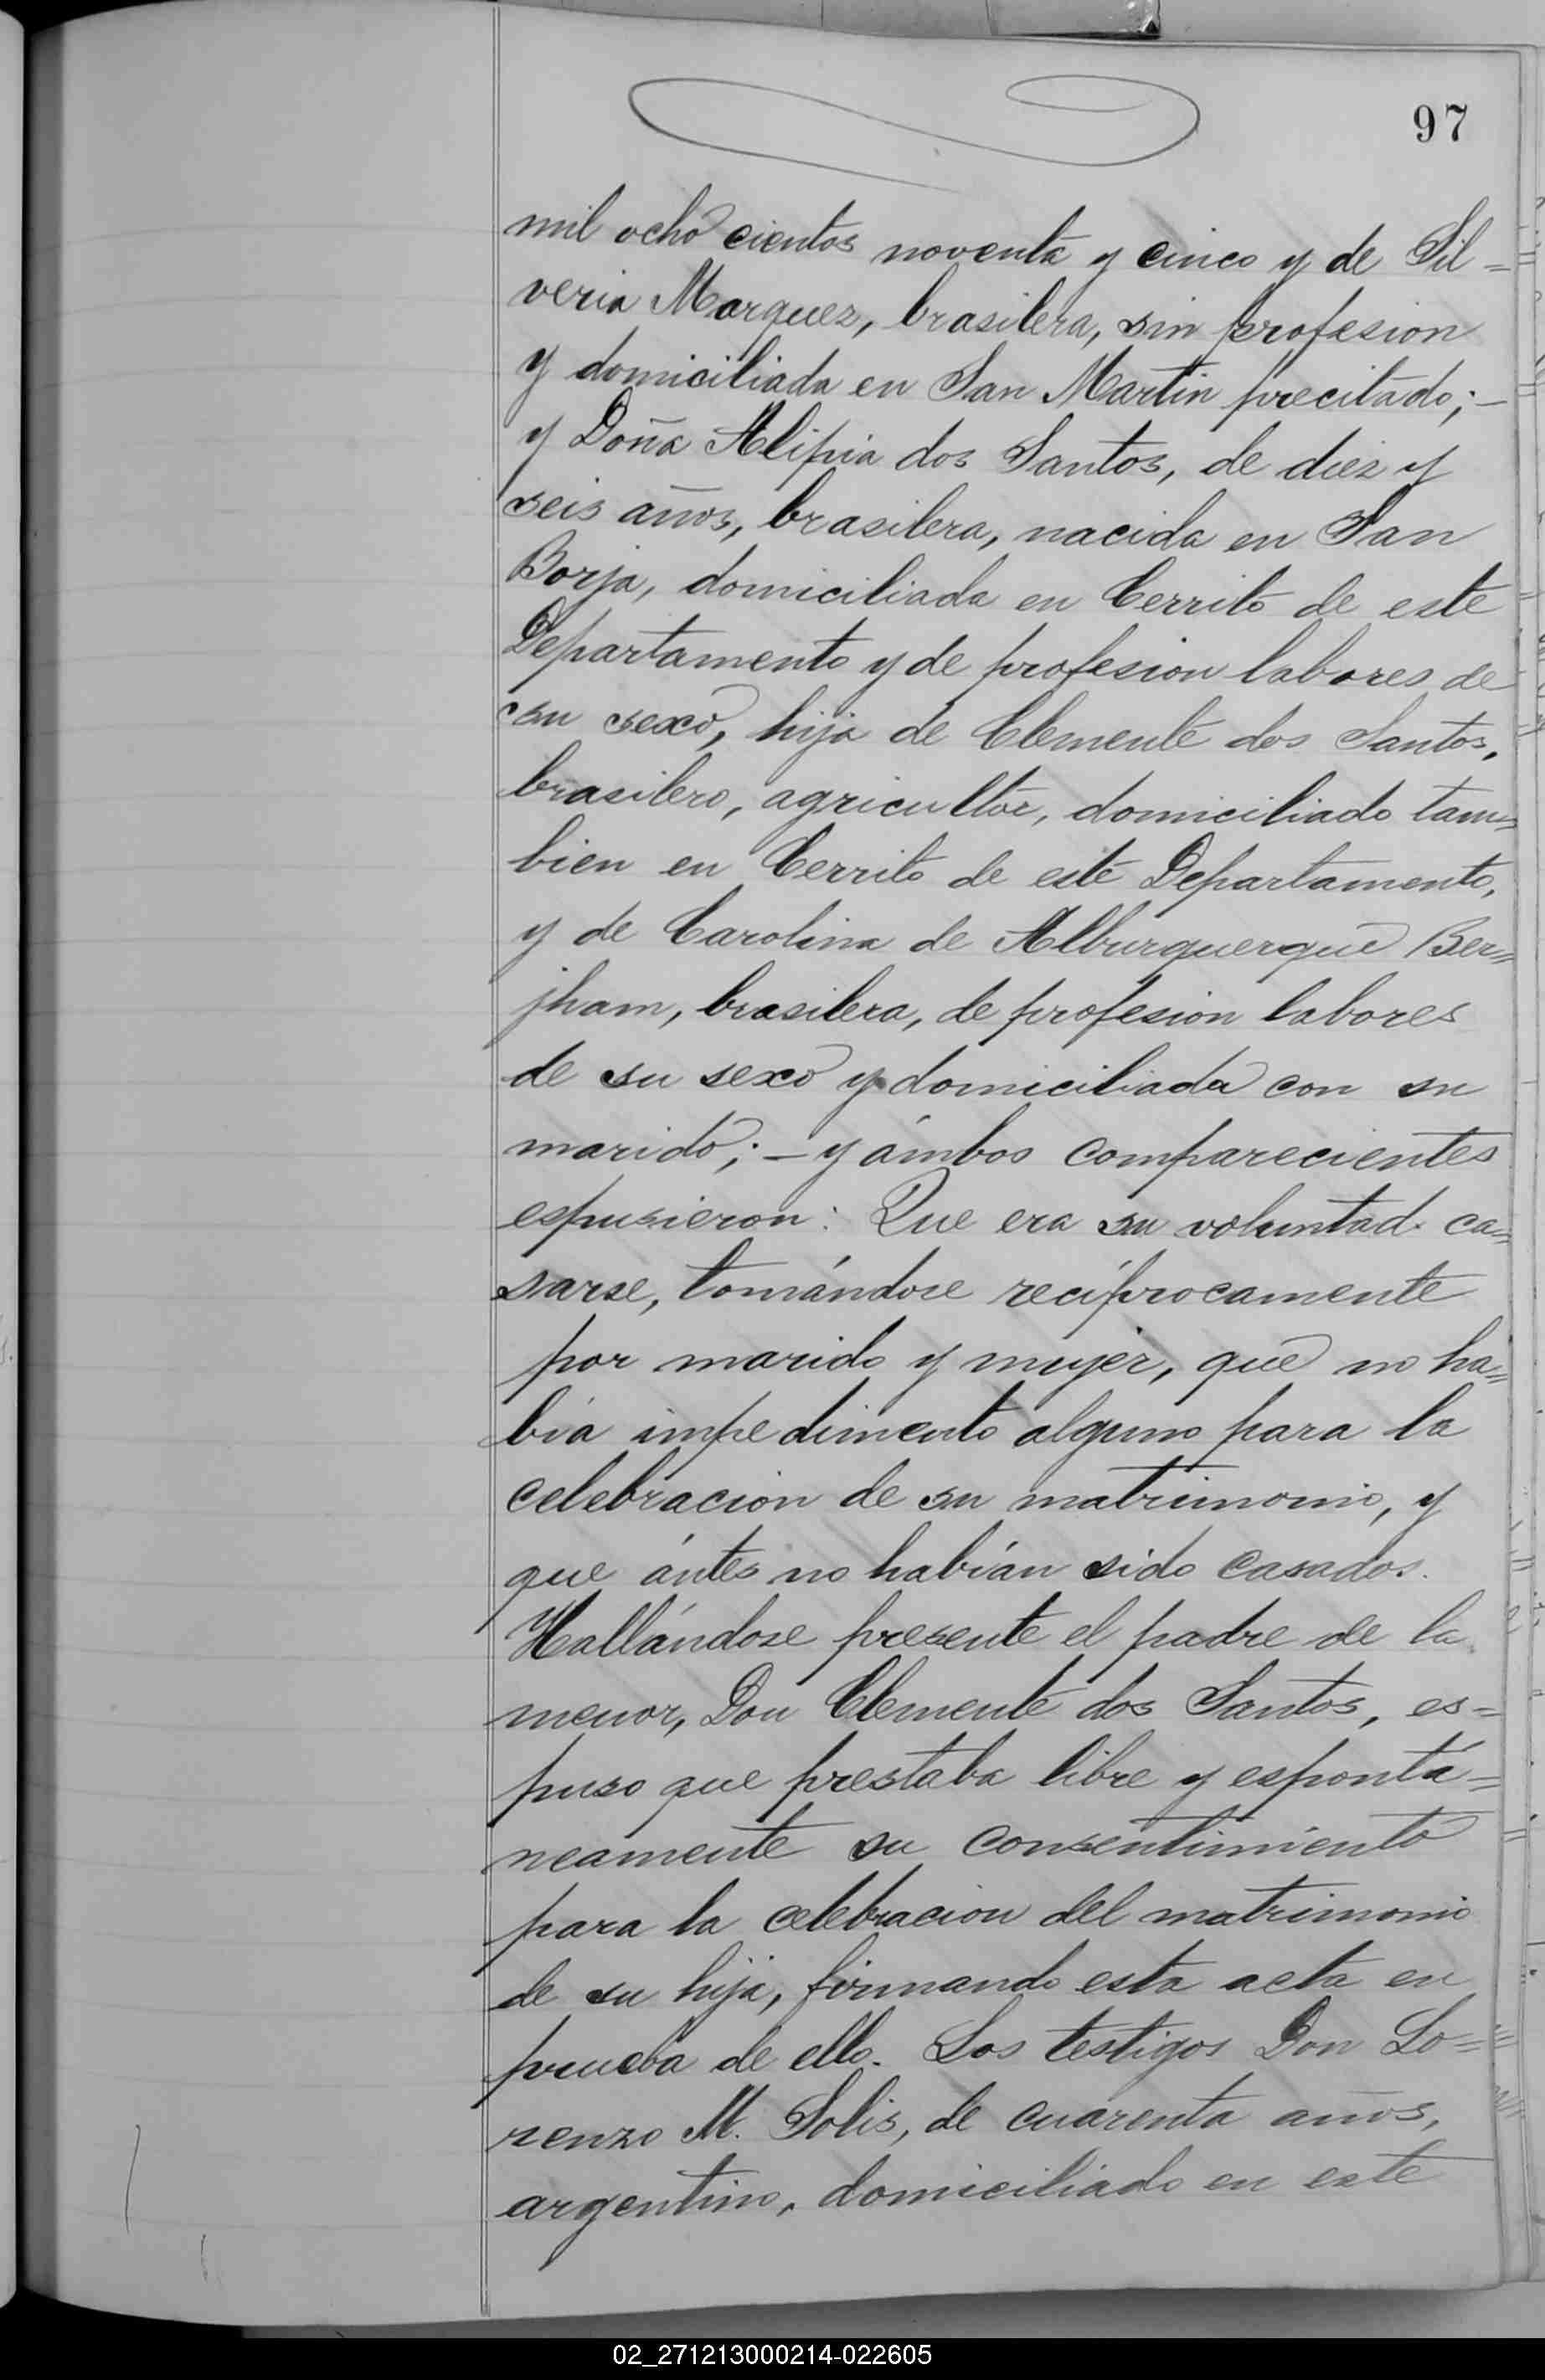 97
mil ocho cientos noventa y cinco y de Sil=
veria Marquez, brasilera, sin profesion
y domiciliada en San Martin precitado;-
y Doña Alipia dos Santos, de diez y
seis años, brasilera, nacida en San
Borja, domiciliada en Cerrito de este
Departamento y de profesion labores de
su sexo, hija de Clemente dos Santos,
brasilero, agricultor, domiciliado tam=
bien en Cerrito de este Departamento,
y de Carolina de Alburquerque Ber=
jham, brasilera, de profesion labores
de su sexo y domiciliada con su
marido;- y ámbos comparecientes
espusieron: Que era su voluntad ca=
sarse, tomándose recíprocamente
por marido y mujer, que no ha=
bía impedimento alguno para la
celebracion de su matrimonio, y
que ántes no habían sido casados.
Hallándose presente el padre de la
menor, Don Clemente dos Santos, es=
puso que prestaba libre y espontá=
neamente su consentimiento
para la celebracion del matrimonio
de su hija, firmando esta acta en
prueba de ello. Los testigos Don Lo=
renzo M. Solis, de cuarenta años,
argentino, domiciliado en este
02_271213000214-022605